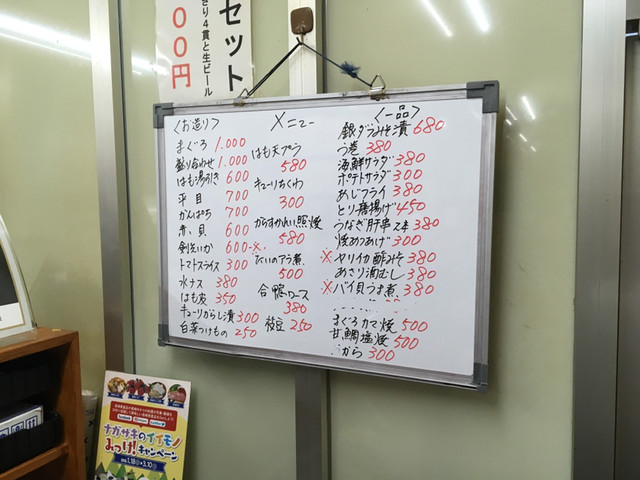 セット
さり4貫と生ビール
00円
メニュー
〈お造り〉
まぐろ 1.000
盛り合わせ 1.000
はも湯引き 600
平目 700
かんぱち 700
赤貝 600
剣先いか 600
トマトスライス 300
水ナス 380
はも皮 350
キューリからし漬 300
白菜つけもの 250
はも天プラ
580
キューリちくわ
300
からすかれい照焼
580
※たいのアラ煮
500
合鴨ロース
380
枝豆 250
〈一品〉
銀ダラみそ漬 680
う巻 380
海鮮サラダ 380
ポテトサラダ 300
あじフライ 380
とり唐揚げ 450
うなぎ肝串2本 380
焼あつあげ 300
※ヤリイカ酢みそ 380
あさり酒むし 380
※バイ貝うま煮 380
まぐろカマ焼 500
甘鯛塩焼 500
がら 300
ナガサキのイイモノ
みっけ!キャンペーン
1.18 3.10